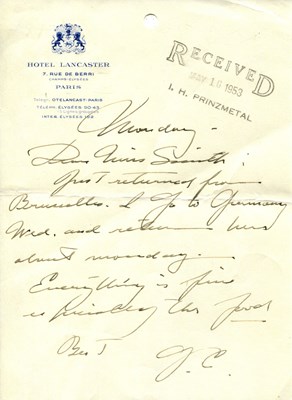 HOTEL LANCASTER
7, RUE DE BERRI
CHAMPS-ÉLYSÉES
PARIS
OTELANCAST-PARIS
TÉLÉPH. ÉLYSÉES 90-43
INTER. ÉLYSÉES 102
RECEIVED
1953
I. H. PRINZMETAL
Monday -
Dear Miss Smith:
Just returned from
Bruxelles. I go to Germany
Wed. and return here
about monday.
Everything is fine
the food
Best
J.C.